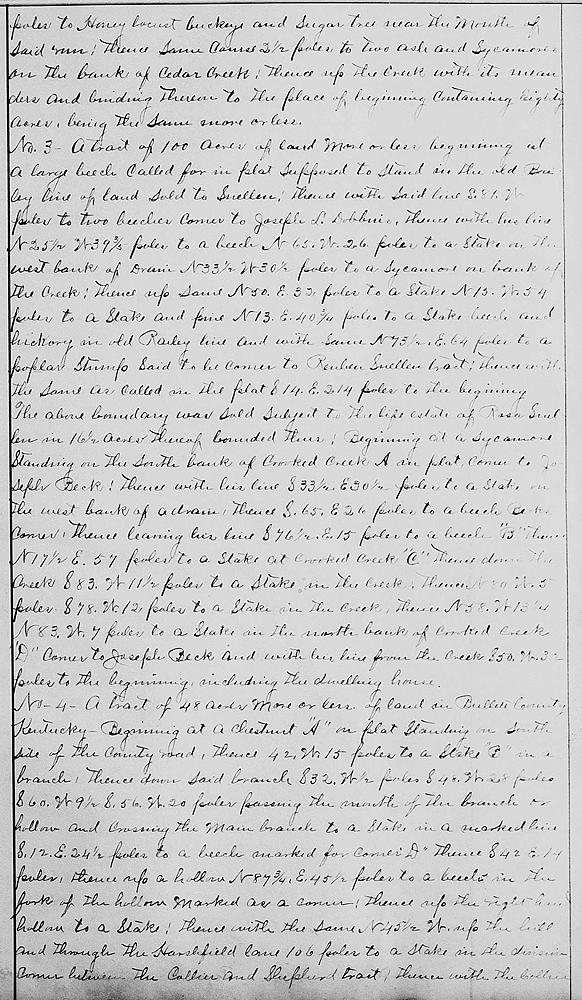 poles to Honey locust buckeye and Sugar tree near the Mouth of
Said run; Thence Same Course 2½ poles to two ash and Sycamores
on the bank of Cedar Creek; Thence up the Creek with its mean
ders and binding thereon to the place of beginning Containing Eighty
Acres, being the Same more or less.
No. 3 - A tract of 100 Acres of land More or less beginning at
a large beech Called for in plat Supposed to Stand in the old Bai
ley line of land Sold to Snellen; thence with Said line S.81. W
poles to two beeches Corner to Joseph L. Dobbins, thence with his line
N25½ W39⅗ poles to a beech N 65. W. 26 poles to a Stake on the
west bank of Drain N33½ W30½ poles to a Sycamore on bank of
the Creek; thence up Same N50. E. 32 poles to a Stake N15. W. 54
poles to a Stake and pine N13. E. 40¾ poles to a Stake beech and
hickory in old Railey line and with Same N73½. E. 64 poles to a
poplar Stump Said to be Corner to Reuben Snellen tract; thence with
the Same as Called in the plat S14. E. 214 poles to the begining
The above boundary was Sold Subject to the life estate of Rosa Snel
len in 16½ acres thereof bounded thus; Beginning at a Sycamore
Standing on the South bank of Crooked Creek A in plat, Corner to Jo
seph Beck; thence with his line S33½ E30½ poles to a Stake on
the west bank of a drain; thence S. 65. E 26 poles to a beech Becks
Corner; thence leaving his line S76½ E. 15 poles to a beech "B" thence
N17½ E. 57 poles to a Stake at Crooked Creek "C" thence down the
Creek S83. W 11½ poles to a Stake in the Creek; thence W. 5
poles. S78. W. 12 poles to a Stake in the Creek, thence N58. W13
N83. W. 7 poles to a Stake in the north bank of Crooked Creek
"D" Corner to Joseph Beck and with his line from the Creek S50. W. 3
poles to the beginning, including the dwelling house.
No - 4 - A tract of 48 Acres More or less of land in Bullitt County
Kentucky - Beginning at a Chestnut "A" on plat Standing on South
side of the County road, thence 42. W. 15 poles to a Stake "B" in a
branch; thence down Said branch S32. W ½ poles S48. W. 28 poles
S60. W 9½ S. 56. W. 20 poles passing the mouth of the branch or
hollow and Crossing the Main branch to a Stake in a marked line
S. 12. E. 24½ poles to a beech marked for Corner "D" thence S42 E. 14
poles, thence up a hollow N87¾. E. 45½ poles to a beech in the
fork of the hollow Marked as a Corner; thence up the right hand
hollow to a Stake; thence with the Same N45½ W. up the hill
and through the Harshfield lane 106 poles to a Stake in the division
Corner between the Collier and Shepherd tract; thence with the Collier